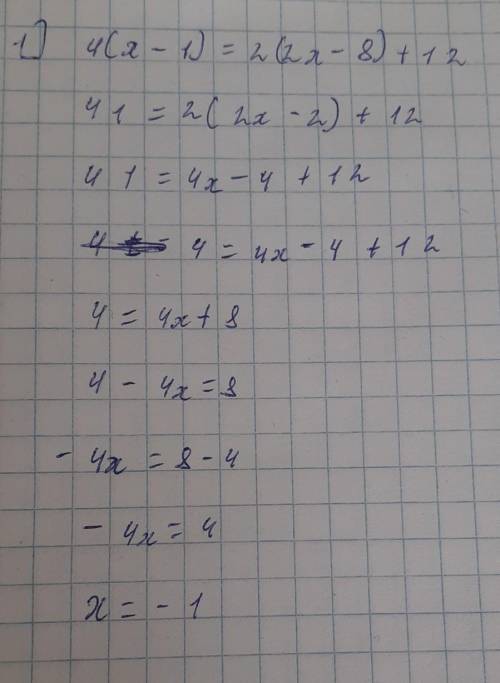 1] 4(x - 1) = 2(2x - 8) + 12
4 1 = 2( 2x - 2) + 12
4 1 = 4x - 4 + 12
4 = 4x - 4 + 12
4 = 4x + 8
4 - 4x = 8
- 4x = 8 - 4
- 4x = 4
x = - 1